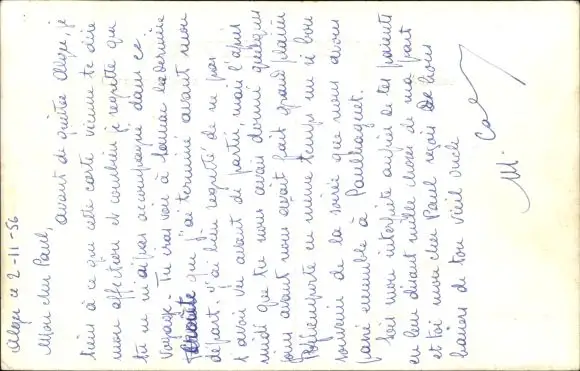 Alger ce 2-11-56
Mon cher Paul,
avant de quitter Alger, je
tiens à ce que cette carte vienne te dire
mon affection et combien je regrette que
tu ne m'aies pas accompagné dans ce
voyage. Tu vas voir à la dernière
que j'ai terminé avant mon
départ. J'ai bien regretté de ne pas
t'avoir vu avant de partir, mais l'après
midi que tu nous avais donné quelques
jours avant nous avait fait grand plaisir
en même temps un si bon
souvenir de la soirée que nous avons
passé ensemble à Paulhaguet.
Sois mon interprète auprès de tes parents
en leur disant mille choses de ma part
et toi mon cher Paul reçois de bons
baisers de ton vieil oncle
M.